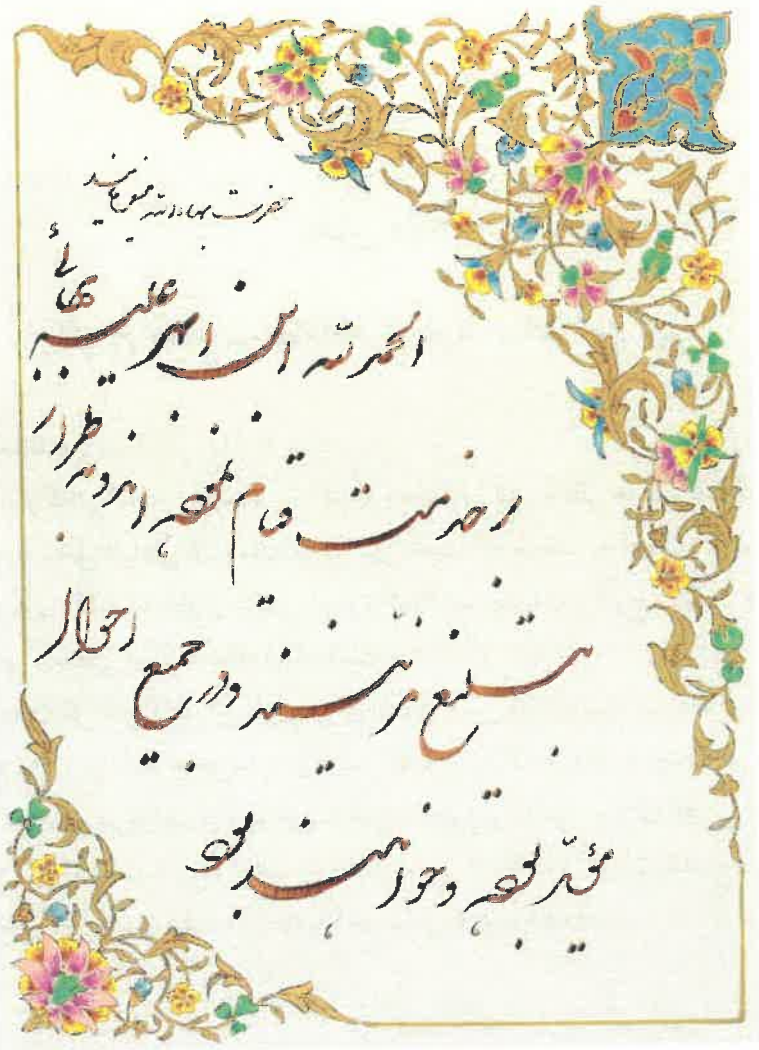 حضرت بهاءالله میفرمایند
الحمد لله ابن ابهر علیه بهائی
بر خدمت قیام نموده اند و بطراز
تبلیغ مزینند و در جمیع احوال
مؤیّد بوده و خواهند بود